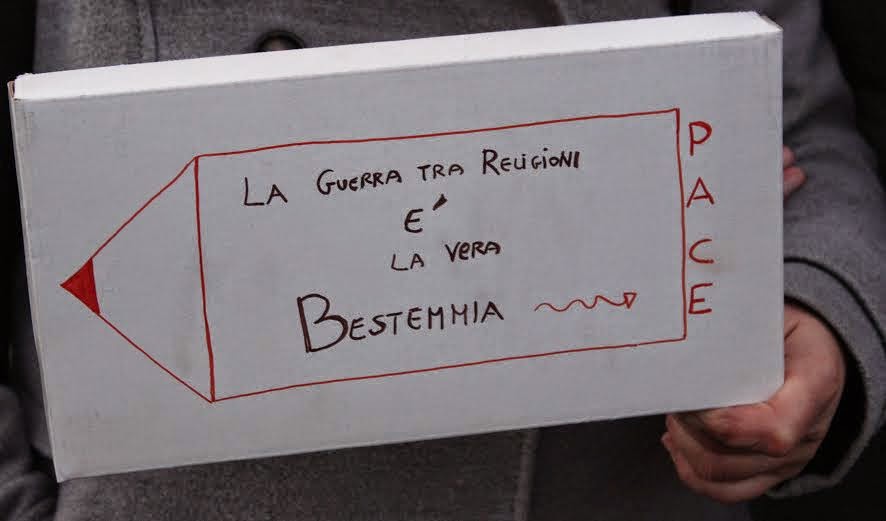 LA GUERRA TRA RELIGIONI
E'
LA VERA
BESTEMMIA
PACE